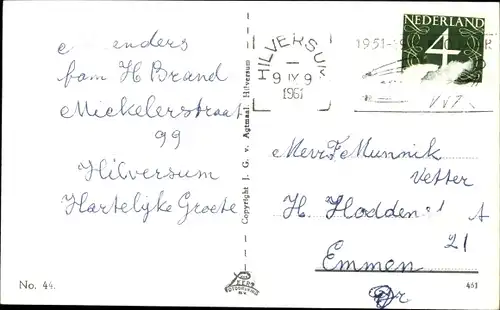 enders
fam H Brand
Mickelerstraat
99
Hilversum
Hartelijke Groete
No. 44.
Copyright J. G. v. Agtmaal. Hilversum
HILVERSUM
9 IV 9
1961
1951-
NEDERLAND
4
Mevr F Munnik
Vetter
H. Hodden A
21
Emmen
Dr
461
KERN